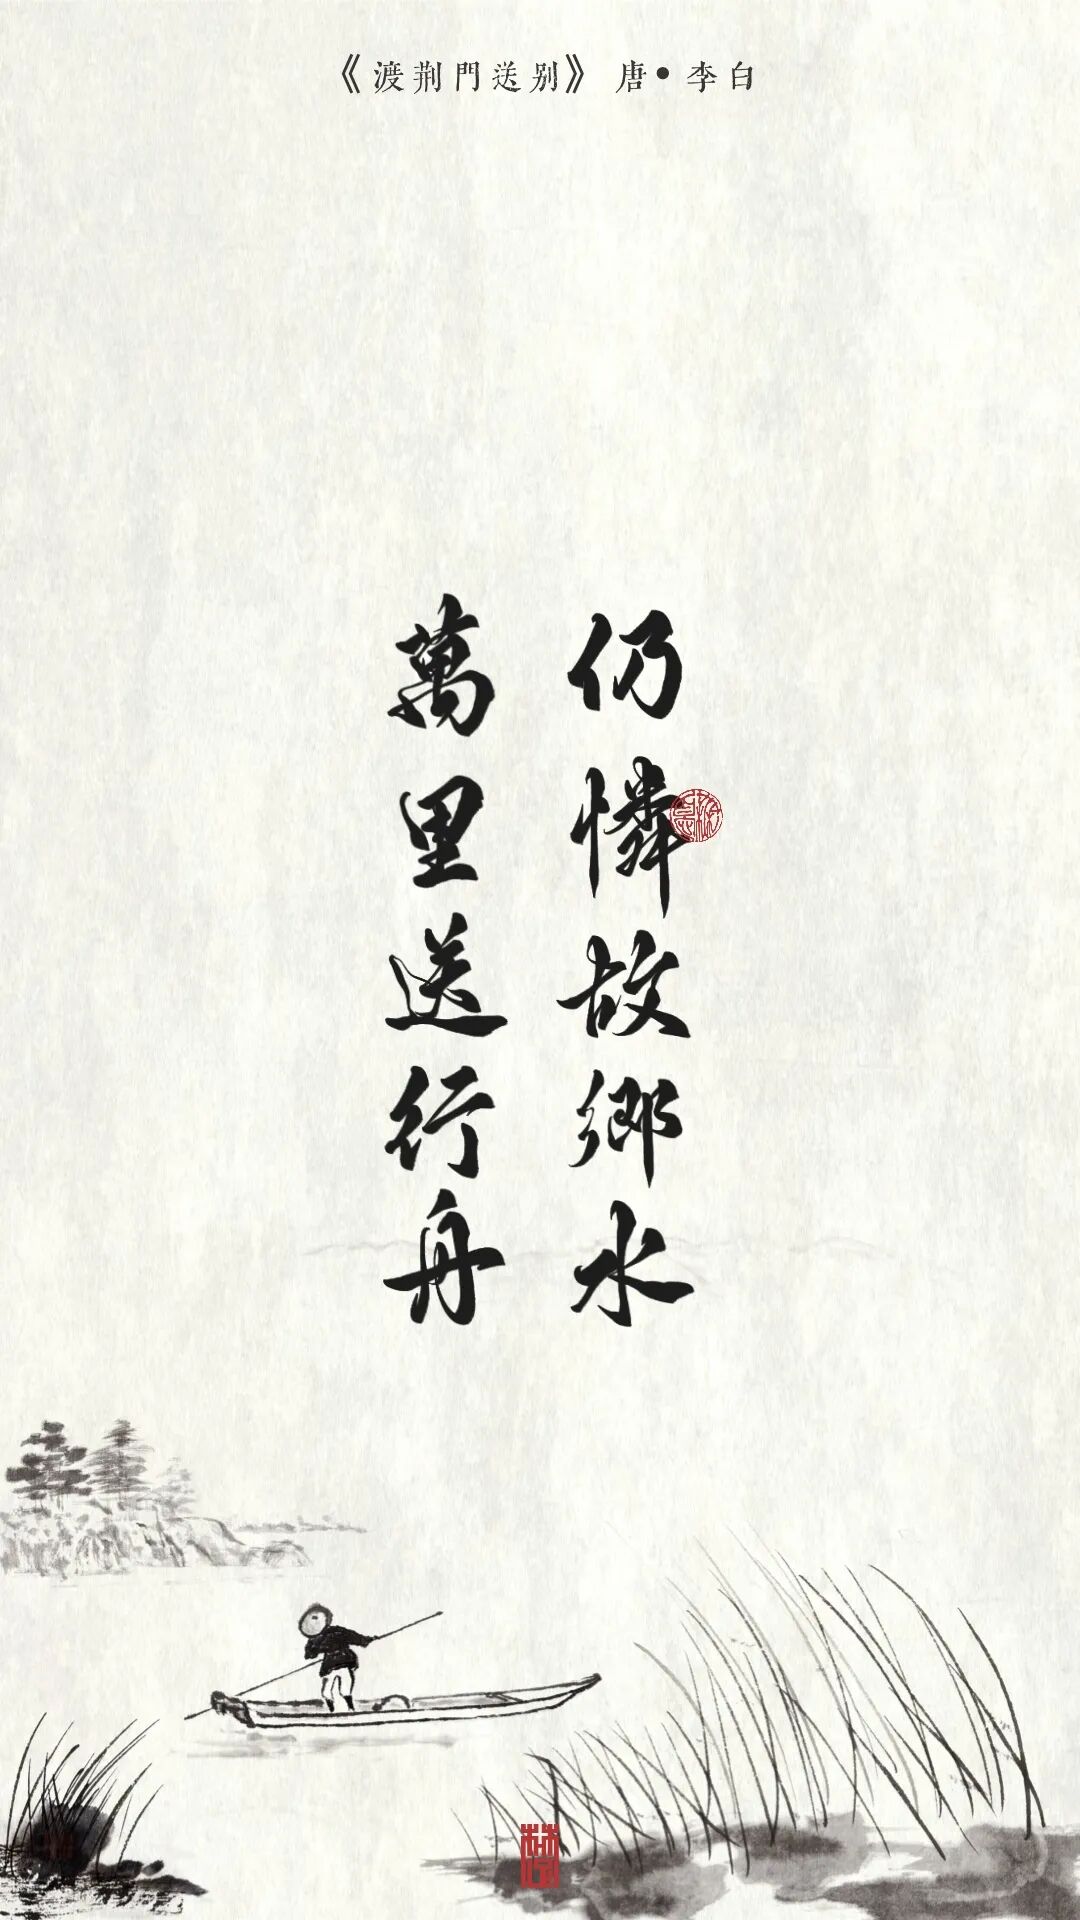 《渡荆門送别》 唐•李白
仍憐故鄉水
萬里送行舟